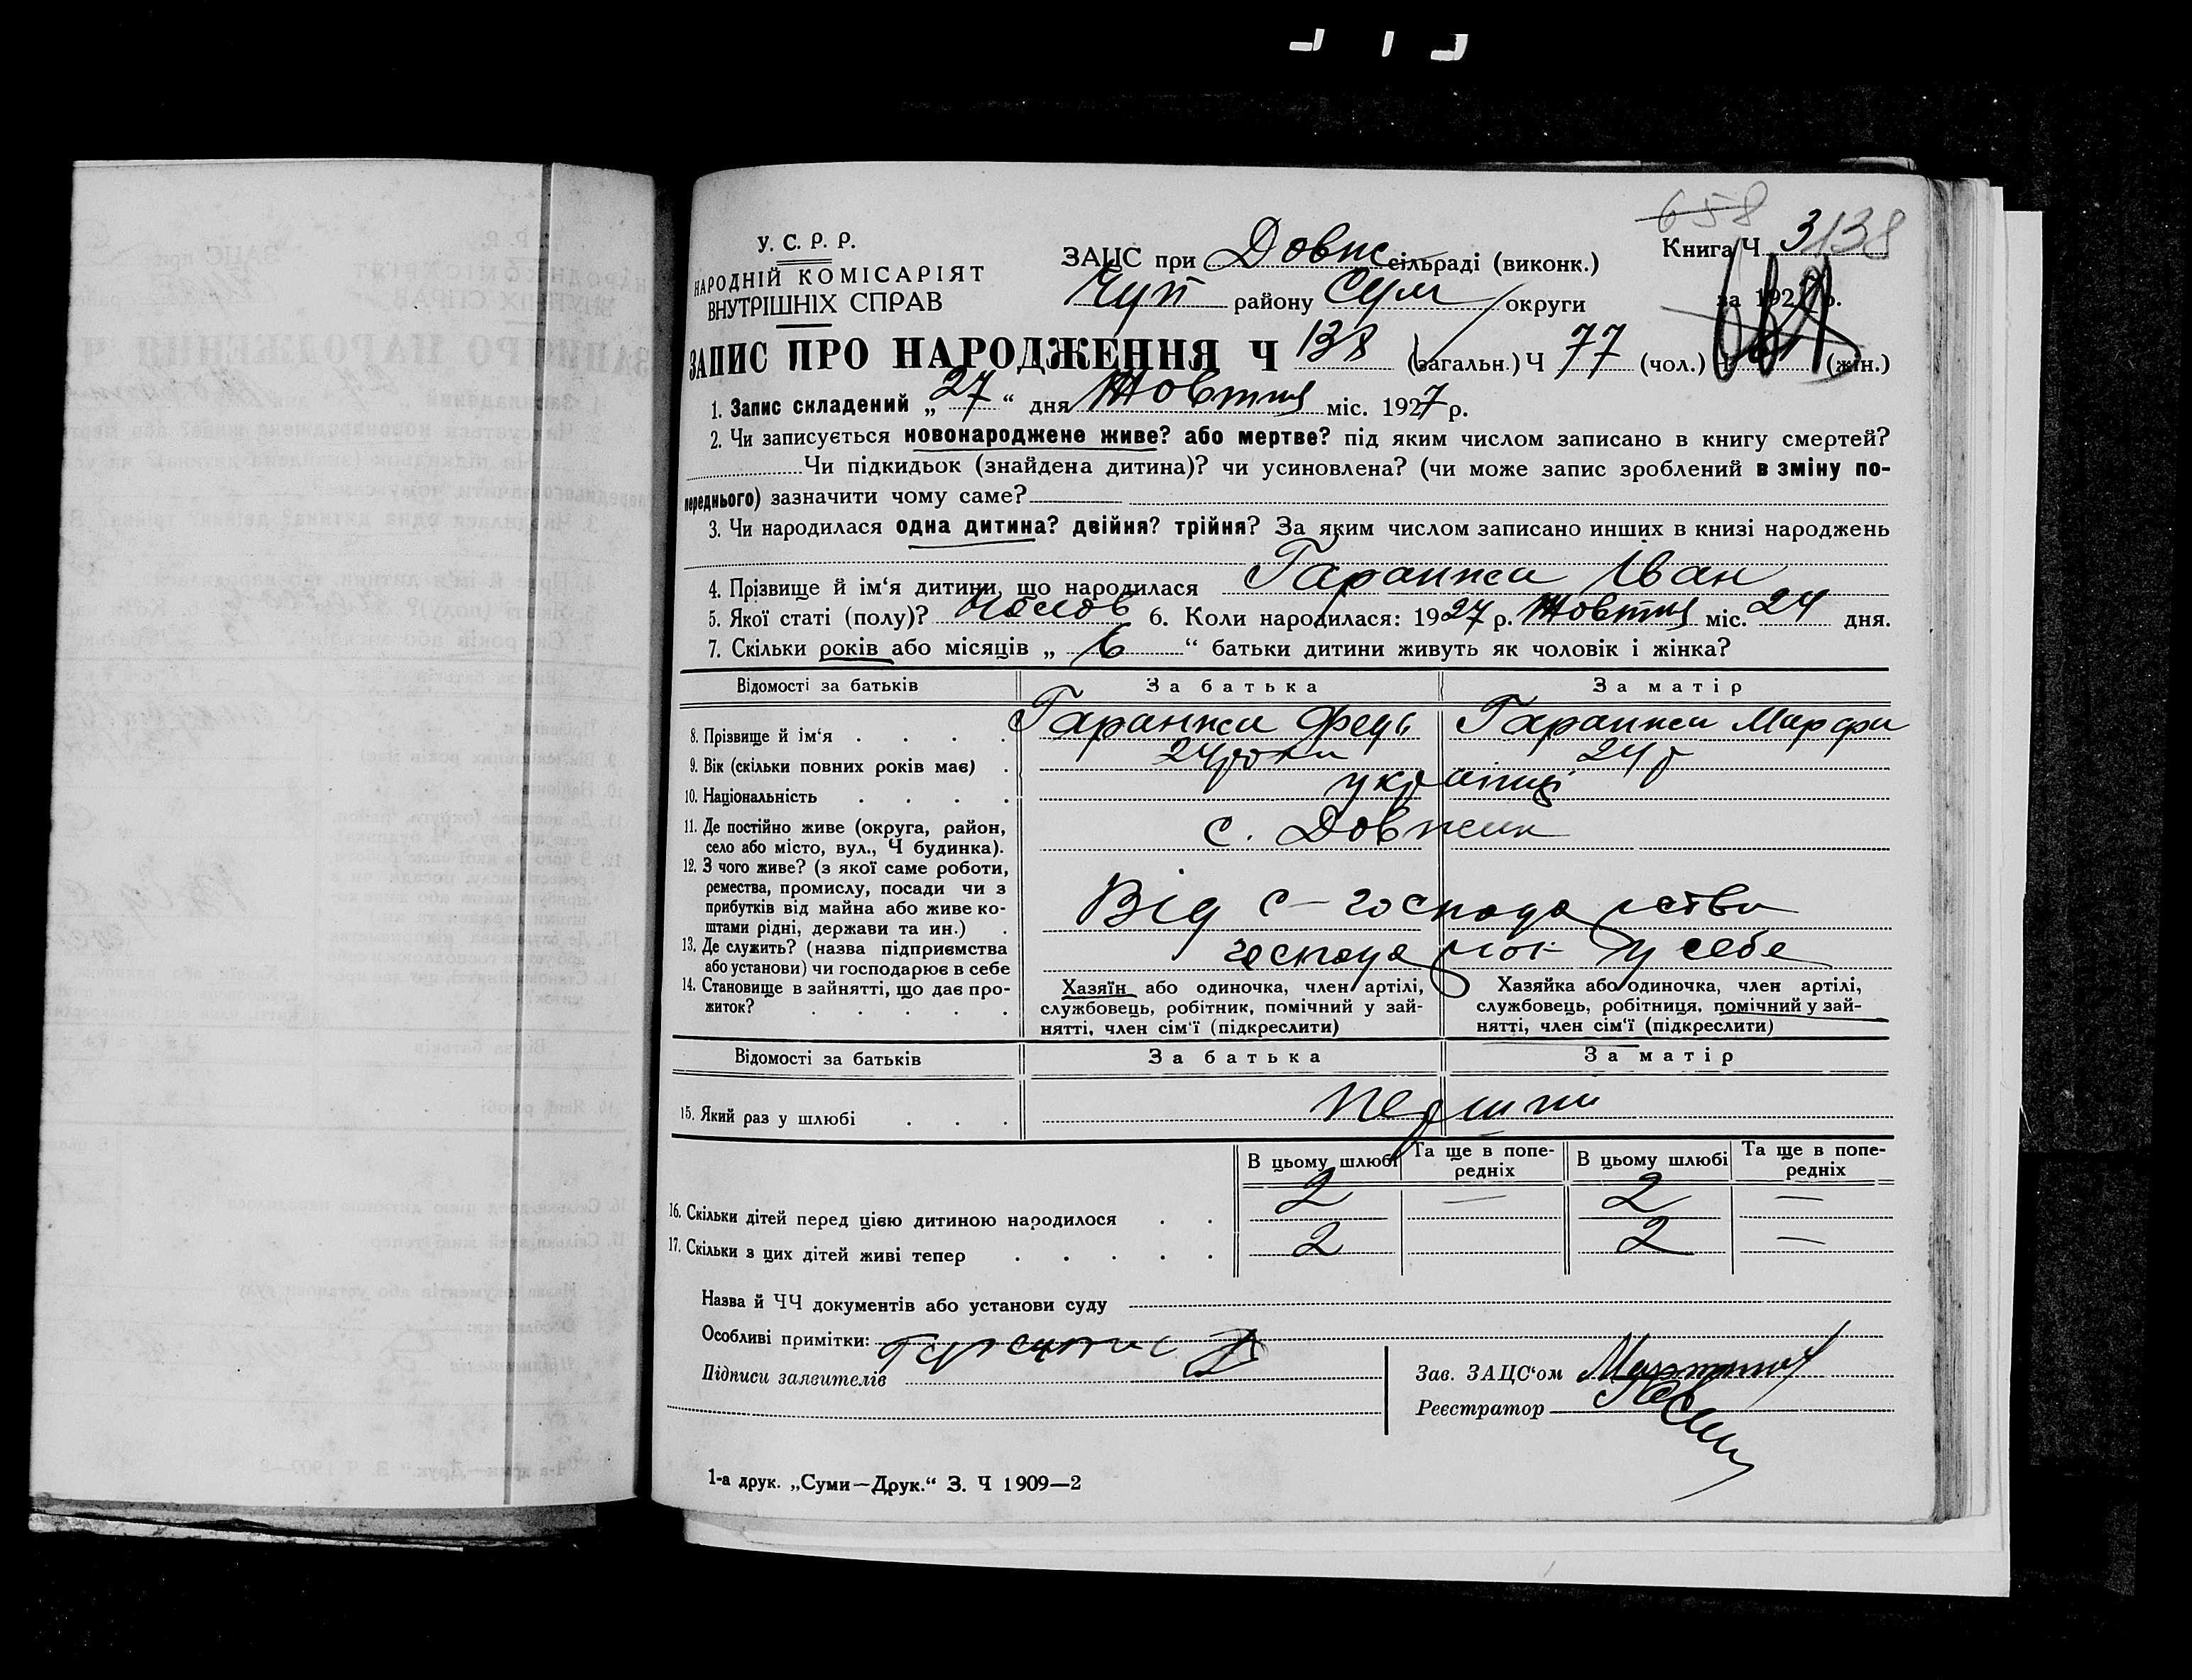 658
У. С. Р. Р.
НАРОДНІЙ КОМІСАРІЯТ
ВНУТРІШНІХ СПРАВ
ЗАЦС при Довж сільраді (виконк.)
Чуп району Сум округи
Книга Ч 3/138
за 1927 р.
ЗАПИС ПРО НАРОДЖЕННЯ Ч 138 (загальн.) Ч 77 (чол.) (жін.)
1. Запис складений „ 27 “ дня Жовтня міс. 1927 р.
2. Чи записується новонароджене живе? або мертве? під яким числом записано в книгу смертей?
Чи підкидьок (знайдена дитина)? чи усиновлена? (чи може запис зроблений в зміну по-
переднього) зазначити чому саме?
3. Чи народилася одна дитина? двійня? трійня? За яким числом записано инших в книзі народжень
4. Прізвище й ім‘я дитини, що народилася Гаранжа Іван
5. Якої статі (полу)? Чолов 6. Коли народилася: 1927 р. Жовтня міс. 24 дня.
7. Скільки років або місяців „ 6 “ батьки дитини живуть як чоловік і жінка?
Відомості за батьків За батька За матір
8. Прізвище й ім‘я . . . . Гаранжа Федь Гаранжа Марфа
9. Вік (скільки повних років має) . 24 роки 24 р
10. Національність . . . . українці
11. Де постійно живе (округа, район,
село або місто, вул., Ч будинка). с. Довжик
12. З чого живе? (з якої саме роботи,
ремества, промислу, посади чи з
прибутків від майна або живе ко-
штами рідні, держави та ин.) . Від с-господарства
13. Де служить? (назва підприємства
або установи) чи господарює в себе господарює у себе
14. Становище в зайнятті, що дає про-
житок? . . . . .
Хазяїн або одиночка, член артілі,
службовець, робітник, помічний у зай-
нятті, член сім‘ї (підкреслити)
Хазяйка або одиночка, член артілі,
службовець, робітниця, помічний у зай-
нятті, член сім‘ї (підкреслити)
Відомості за батьків За батька За матір
15. Який раз у шлюбі . . . перший
В цьому шлюбі Та ще в попе-редніх В цьому шлюбі Та ще в попе-редніх
16. Скільки дітей перед цією дитиною народилося . . 2 — 2 —
17. Скільки з цих дітей живі тепер . . . . . 2 2 —
Назва й ЧЧ документів або установи суду
Особливі примітки:
Підписи заявителів
Зав. ЗАЦС‘ом
Реєстратор
1-а друк. „Суми—Друк.“ З. Ч 1909—2